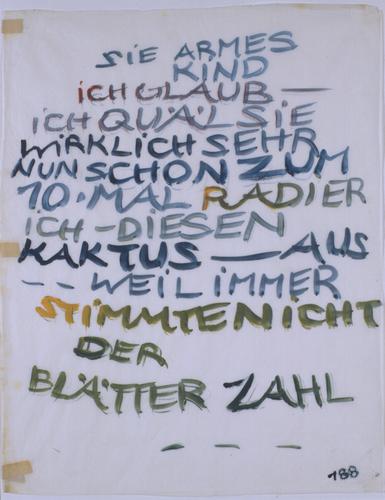 SIE ARMES
KIND
ICH GLAUB —
ICH QUÄL SIE
WIRKLICH SEHR
NUN SCHON ZUM
10. MAL RADIER
ICH - DIESEN
KAKTUS — AUS
-- WEIL IMMER
STIMMTE NICHT
DER
BLÄTTER ZAHL
- - - -
188